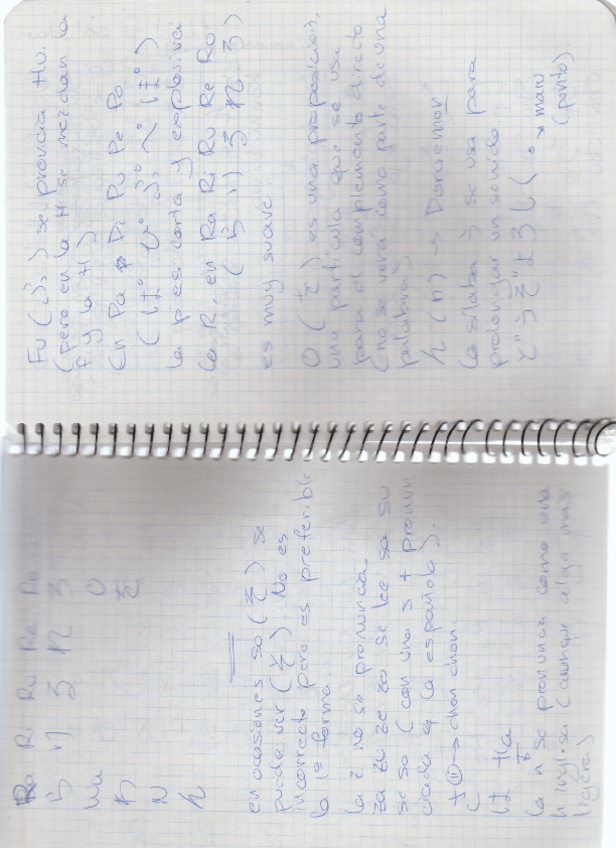 Ra Ri Ru Re Ro
ら り る れ ろ
Wa O
わ を
N
ん
en ocasiones so (そ) se
puede ver ( ). No es
incorrecto pero es preferible
la 1ª forma
La z no se pronuncia
za zu ze zo se lee sa su
se so (con una s + pronun
ciada q la español).
chan chan.
は Ha
La h se pronuncia como una
h inglesa (aunque algo mas
ligera)
Fu (ふ) se pronuncia Hu.
(pero en la H se mezclan la
F y la H)
En Pa Pi Pu Pe Po
(ぱ ぴ ぷ ぺ ぽ)
la p es corta y explosiva
La R, en Ra Ri Ru Re Ro
(ら り る れ ろ)
es muy suave
O (を) es una preposición,
una partícula que se usa
para el complemento directo
(no se verá como parte de una
palabra)
ん (n) → Doraemon
La sílaba う se usa para
prolongar un sonido
maru
(punto)